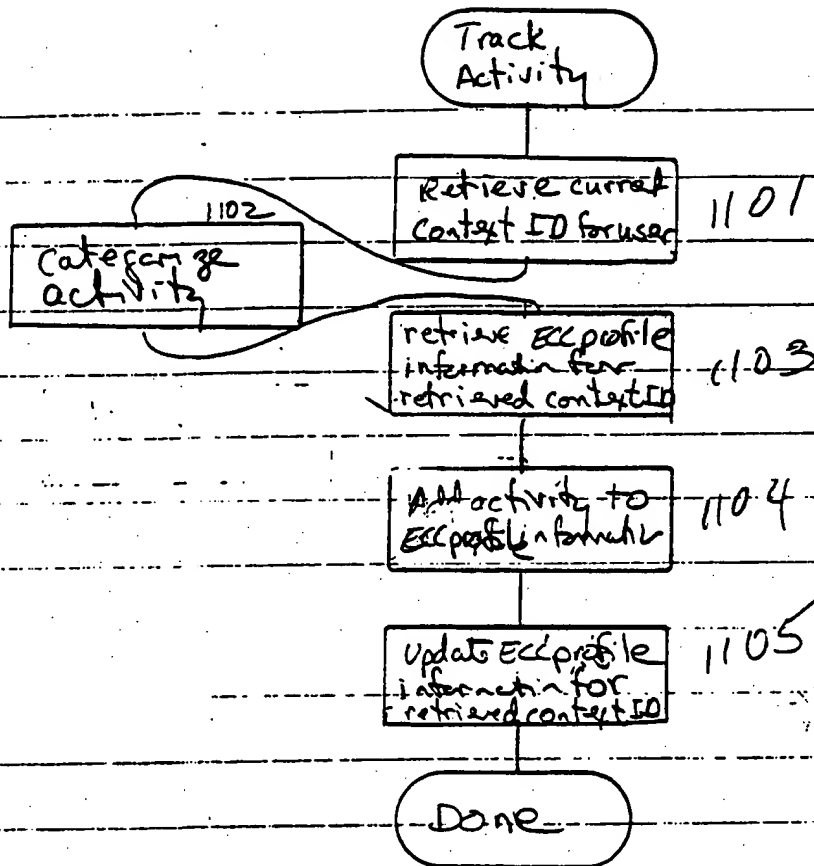 Track
Activity
Retrieve current
context ID for user
1101
1102
Categorize
activity
retrieve ECC profile
information for
retrieved context ID
1103
Add activity to
ECC profile information
1104
Update ECC profile
information for
retrieved context ID
1105
Done